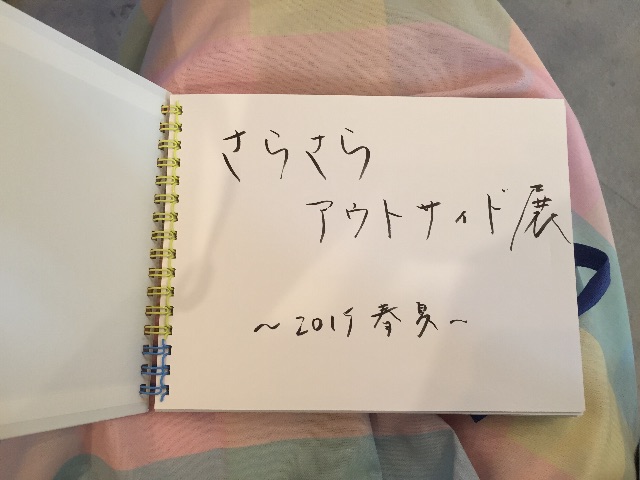 さらさら
アウトサイド展
〜2019春夏〜